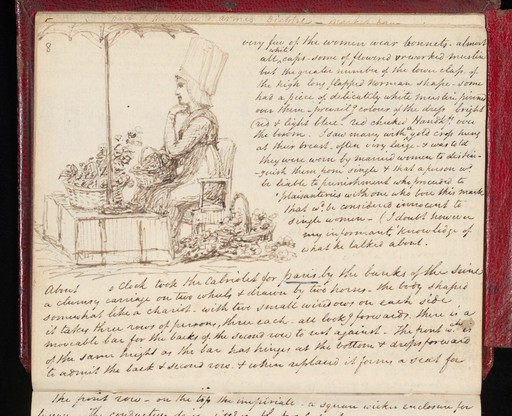 8
very few of the women wear bonnets - almost
all ^white caps - some of flowered or worked muslin
but the greater number of the lower class of
the high long flapped Norman shape - some
had a piece of delicately white muslin pinned
over them - colors of the dress bright
(red & light blue red checked Handkf. over
the bosom. I saw many with a gold cross hung
at their breast - often very large - & was told
they were worn by married women to distin-
-guish them from single & that a person wd.
be liable to punishment who proceeded to
plaisanteries with one who bore this mark
that wd. be considered innocent to
single women - (I doubt however
my informant's knowledge of
what he talked about.
About o'Clock took the Cabriolet for Paris by the banks of the Seine
a clumsy carriage on two wheels & drawn by two horses - the body shaped
somewhat like a chariot - with two small windows on each side.
it takes three rows of persons, three each - all look forwards. there is a
moveable bar for the backs of the second row to rest against. The front
of the same height as the bar has hinges at the bottom & drops forward
to admit the back & second row. & when replaced it forms a seat for
the front row - on the top the imperiale - a square wicker enclosure for